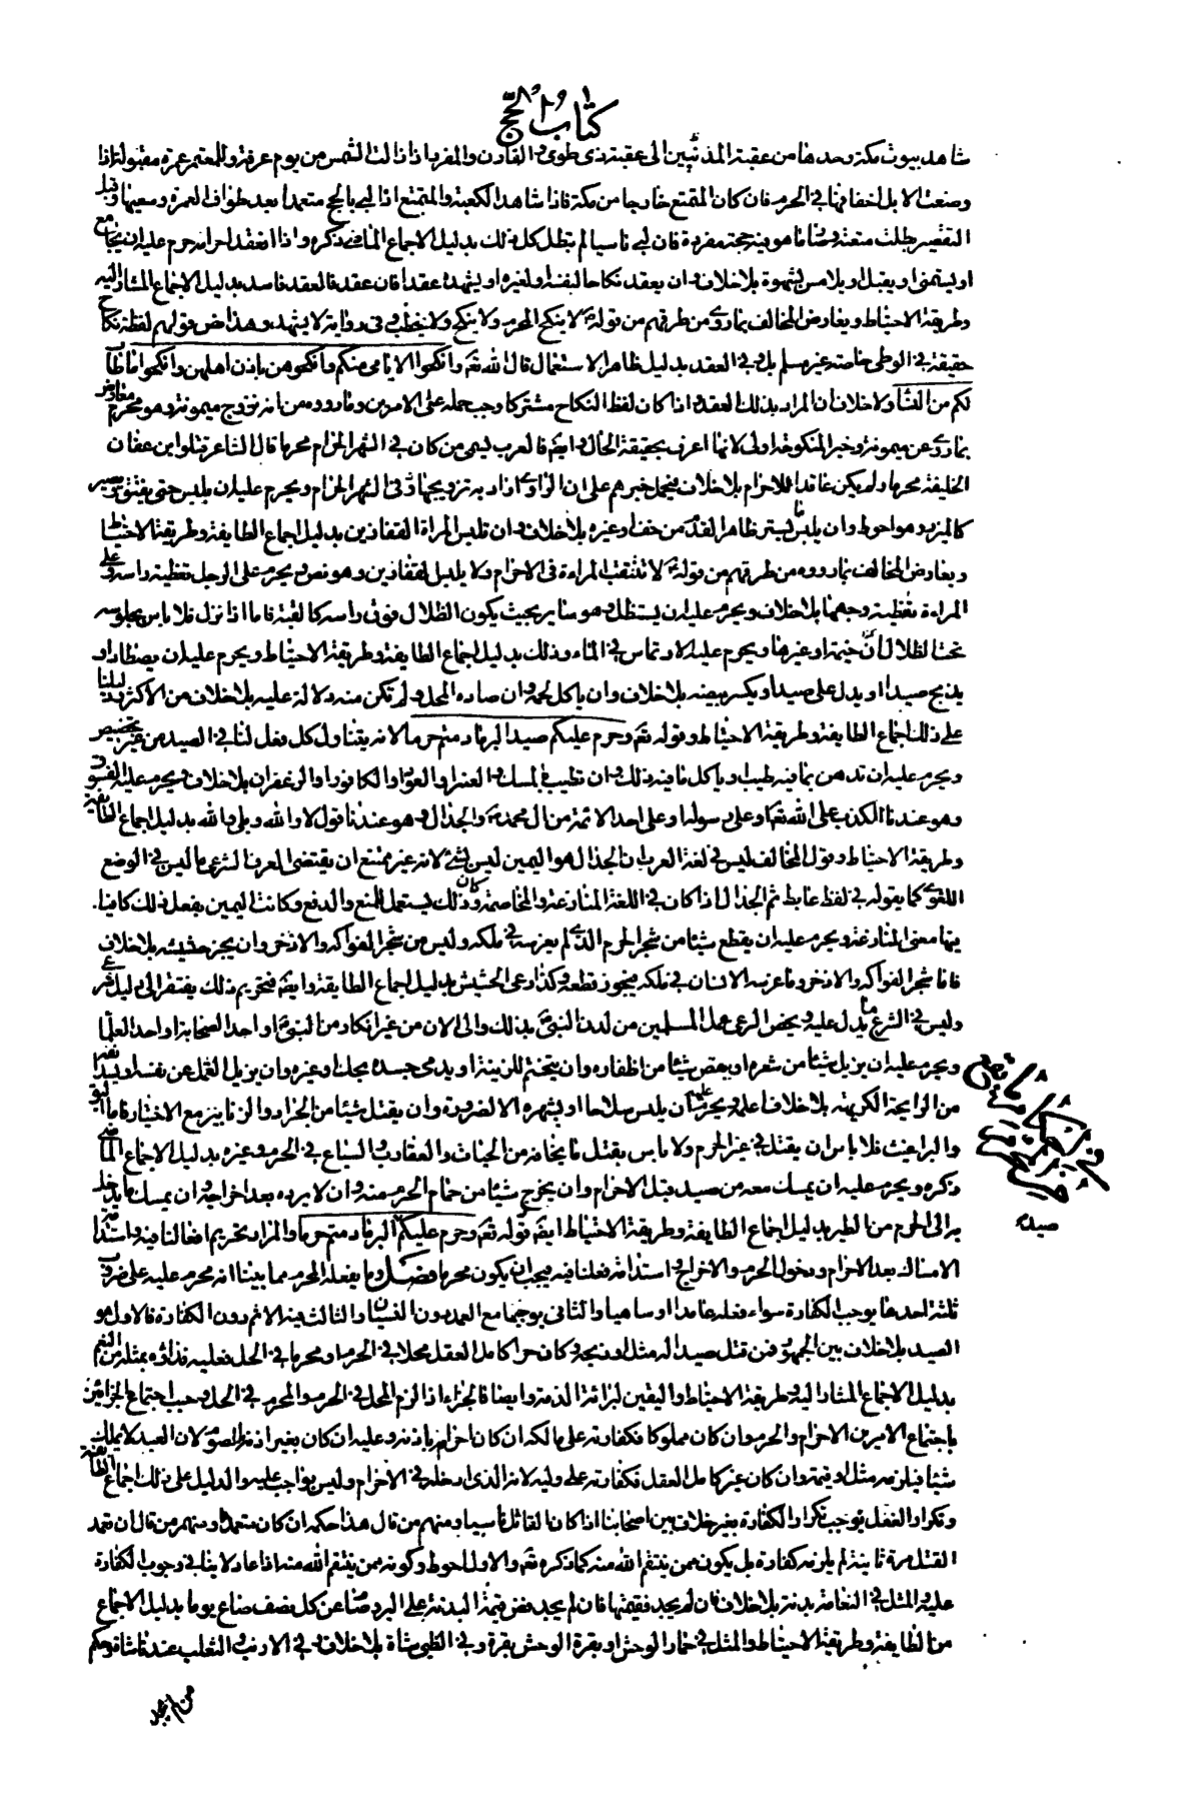 كتاب الحج
شاهد بيوت مكة وحدها من عقبة المدنيين الى عقبة ذى طوى و القارن والمفرد اذا زالت الشمس من يوم عرفة وللمعتمر عمرة مقبولة اذا
وضعت الابل اخفافها في الحرم فان كان المتمتع خارجا من مكة فاذا شاهد الكعبة والمتمتع اذا لبى بالحج متعمدا بعد طواف العمرة وسعيها وقبل
التقصير بطلت متعته وصار ما هو فيه حجة مفردة فان لبى ناسيا لم تبطل كل ذلك بدليل الاجماع الماضى ذكره واذا انعقد احرامه حرم عليه ان يجامع
او يستمنى او يقبل او يلامس بشهوة بلا خلاف و ان يعقد نكاحا لنفسه او لغيره او يشهد عقدا فان عقد فالعقد فاسد بدليل الاجماع المشار اليه
وطريقة الاحتياط ويعارض المخالف بما روى من طرقهم من قوله لا ينكح المحرم ولا ينكح ولا يخطب وفى رواية لا يشهد وهذا نص وقولهم لفظة نكاح
حقيقة في الوطى خاصة غير مسلم بل و فى العقد بدليل ظاهر الاستعمال قال الله تع وانكحوا الايامى منكم وانكحوهن باذن اهلهن وانكحوا ما طاب
لكم من النساء ولا خلاف ان المراد بذلك العقد و اذا كان لفظ النكاح مشتركا وجب حمله على الامرين وما رووه من انه تزوج ميمونة وهو محرم معارض
بما روى عن ميمونة وخبر المنكوحة اولى لانها اعرف بحقيقة الحال و ايضا فالعرب يسمى من كان في الشهر الحرام محرما قال الشاعر قتلوا ابن عفان
الخليفة محرما ولم يكن عاقدا للاحرام بلا خلاف فيحمل خبرهم على ان الراوى اراد به تزويجها فى الشهر الحرام ويحرم عليه ان يلبس حتى يفتق ويصير
كالميزر وهو احوط وان يلبس ما يستر ظاهر القدم من خف او غيره بلا خلاف و ان تلبس المراة القفازين بدليل اجماع الطايفة وطريقة الاحتياط
ويعارض المخالف بما رووه من طرقهم من قوله لا تنتقب المراءة فى الاحرام ولا يلبس القفازين وهو نص ويحرم على الرجل تغطية راسه و على
المراءة تغطية وجهها بلا خلاف ويحرم عليه ان يستظل وهو ساير بحيث يكون الظلال فوق راسه كالقبة فاما اذا نزل فلا باس بجلوسه
تحت الظلال خيمة او غيرها ويحرم عليه الارتماس في الماء وذلك بدليل اجماع الطايفة وطريقة الاحتياط ويحرم عليه ان يصطاد او
يذبح صيدا او يدل على صيد او يكسر بيضه بلا خلاف وان ياكل لحمه و ان صاده المحل و لم تكن منه دلالة عليه بلا خلاف من الاكثر دليلنا
على ذلك اجماع الطايفة وطريقة الاحتياط وقوله تع وحرم عليكم صيد البر ما دمتم حرما لانه يتناول كل فعل لنا في الصيد من غير تخصيص
ويحرم عليه ان تدهن بما فيه طيب او ياكل ما فيه ذلك و ان تطيب بالمسك و العنبر او العود او الكافور او الزعفران بلا خلاف و يحرم عليه الفسوق
وهو عندنا الكذب على الله تعا وعلى رسوله او على احد الائمة من ال محمد والجدال و هو عندنا قول لا والله وبلى والله بدليل اجماع الطايفة
وطريقة الاحتياط وقول المخالف ليس فى لغة العرب ان الجدال هو اليمين ليس بشئ لانه غير ممتنع ان يقتضى العرف الشرعى ما ليس فى الوضع
اللغوى كما يقوله فى لفظ غايط ثم الجدال اذا كان فى اللغة المنازعة والمخاصمة و كان ذلك يستعمل للمنع والدفع وكانت اليمين يفعل لذلك كان فيها
معنى المنازعة ويحرم عليه ان يقطع شيئا من شجر الحرم الذى لم يغرسه فى ملكه وليس من شجر الفواكه والاذخر وان يجز حشيشه بلا خلاف
فاما شجر الفواكه والاذخر وما غرسه الانسان فى ملكه فيجوز قطعه وكذا رعى الحشيش بدليل اجماع الطايفة وايضا فتحريم ذلك يفتقر الى دليل شرعى
وليس فى الشرع ما يدل عليه و يخص الرعى عمل المسلمين من لدن النبى بذلك والى الان من غير انكار من النبى او احد الصحابة او احد العلما
ويحرم عليه ان يزيل شيئا من شعره او يقص شيئا من اظفاره وان يتختم للزينة او يدمى جسده بحك او غيره وان يزيل القمل عن نفسه او يسد انفه
من الرايحة الكريهة بلا خلاف اعلمه ويحرم عليه ان يلبس سلاحا او يشهره الا لضرورة وان يقتل شيئا من الجراد والزنابير مع الاختيار فاما البق
والبراغيث فلا باس ان يقتل فى غير الحرم ولا باس بقتل ما يخافه من الحيات والعقارب والسباع فى الحرم و غيره بدليل الاجماع الماضى
ذكره ويحرم عليه ان يمسك معه من صيد قبل الاحرام وان يخرج شيئا من حمام الحرم منه و ان لا يرده بعد اخراجه و ان يمسك ما يدخل
به الى الحرم من الطير بدليل اجماع الطايفة وطريقة الاحتياط ايضا قوله تع وحرم عليكم البر ما دمتم حرما والمراد تحريم افعالنا فيه واستدامة
الامساك بعد الاحرام ودخول الحرم والاخراج و استدامته فعلنا فيه فيجب ان يكون محرما فصل وما يفعله المحرم مما بينا انه محرم عليه على ضروب
ثلثة احدها يوجب الكفارة سواء فعله عامدا او ساهيا والثانى يوجبها مع العمد دون النسيان والثالث فيه الاثم دون الكفارة فالاول هو
الصيد بلا خلاف بين الجمهور فمن قتل صيدا له مثل او ذبحه و كان حرا كامل العقل محلا في الحرم او محرما فى الحل فعليه فداؤه بمثله من النعم
بدليل الاجماع المشار اليه و طريقة الاحتياط واليقين لبرائة الذمة وايضا فالجزاء اذا لزم المحل فى الحرم والمحرم فى الحل وجب اجتماع الجزائين
باجتماع الامرين الاحرام والحرم وان كان مملوكا فكفارته على مالكه ان كان احرامه باذنه و عليه ان كان بغير اذنه الصوم لان العبد لا يملك
شيئا فيلزمه مثل او قيمة وان كان غير كامل العقل فكفارته على وليه لانه الذى ادخله فى الاحرام وليس بواجب عليه والدليل على ذلك اجماع الطايفة
وتكرار الفعل يوجب تكرار الكفارة بغير خلاف بين اصحابنا اذا كان القاتل ناسيا ومنهم من قال هذا حكمه ان كان متعمدا ومنهم من قال ان تعمد
القتل مرة ثانية لم يلزمه كفارة بل يكون ممن ينتقم الله منه كما ذكره تع والاول احوط وكونه ممن ينتقم الله منه اذا عاد لا ينافى وجوب الكفارة
عليه و المثل فى النعامة بدنة بلا خلاف فان لم يجد فقيمتها فان لم يجد فض قيمة البدنة على البر و صام عن كل نصف صاع يوما بدليل الاجماع
من الطايفة وطريقة الاحتياط و المثل فى حمار الوحش او بقرة الوحش بقرة و فى الظبى شاة بلا خلاف و فى الارنب و الثعلب عندنا شاة وحكم
صيده
من لم يجد